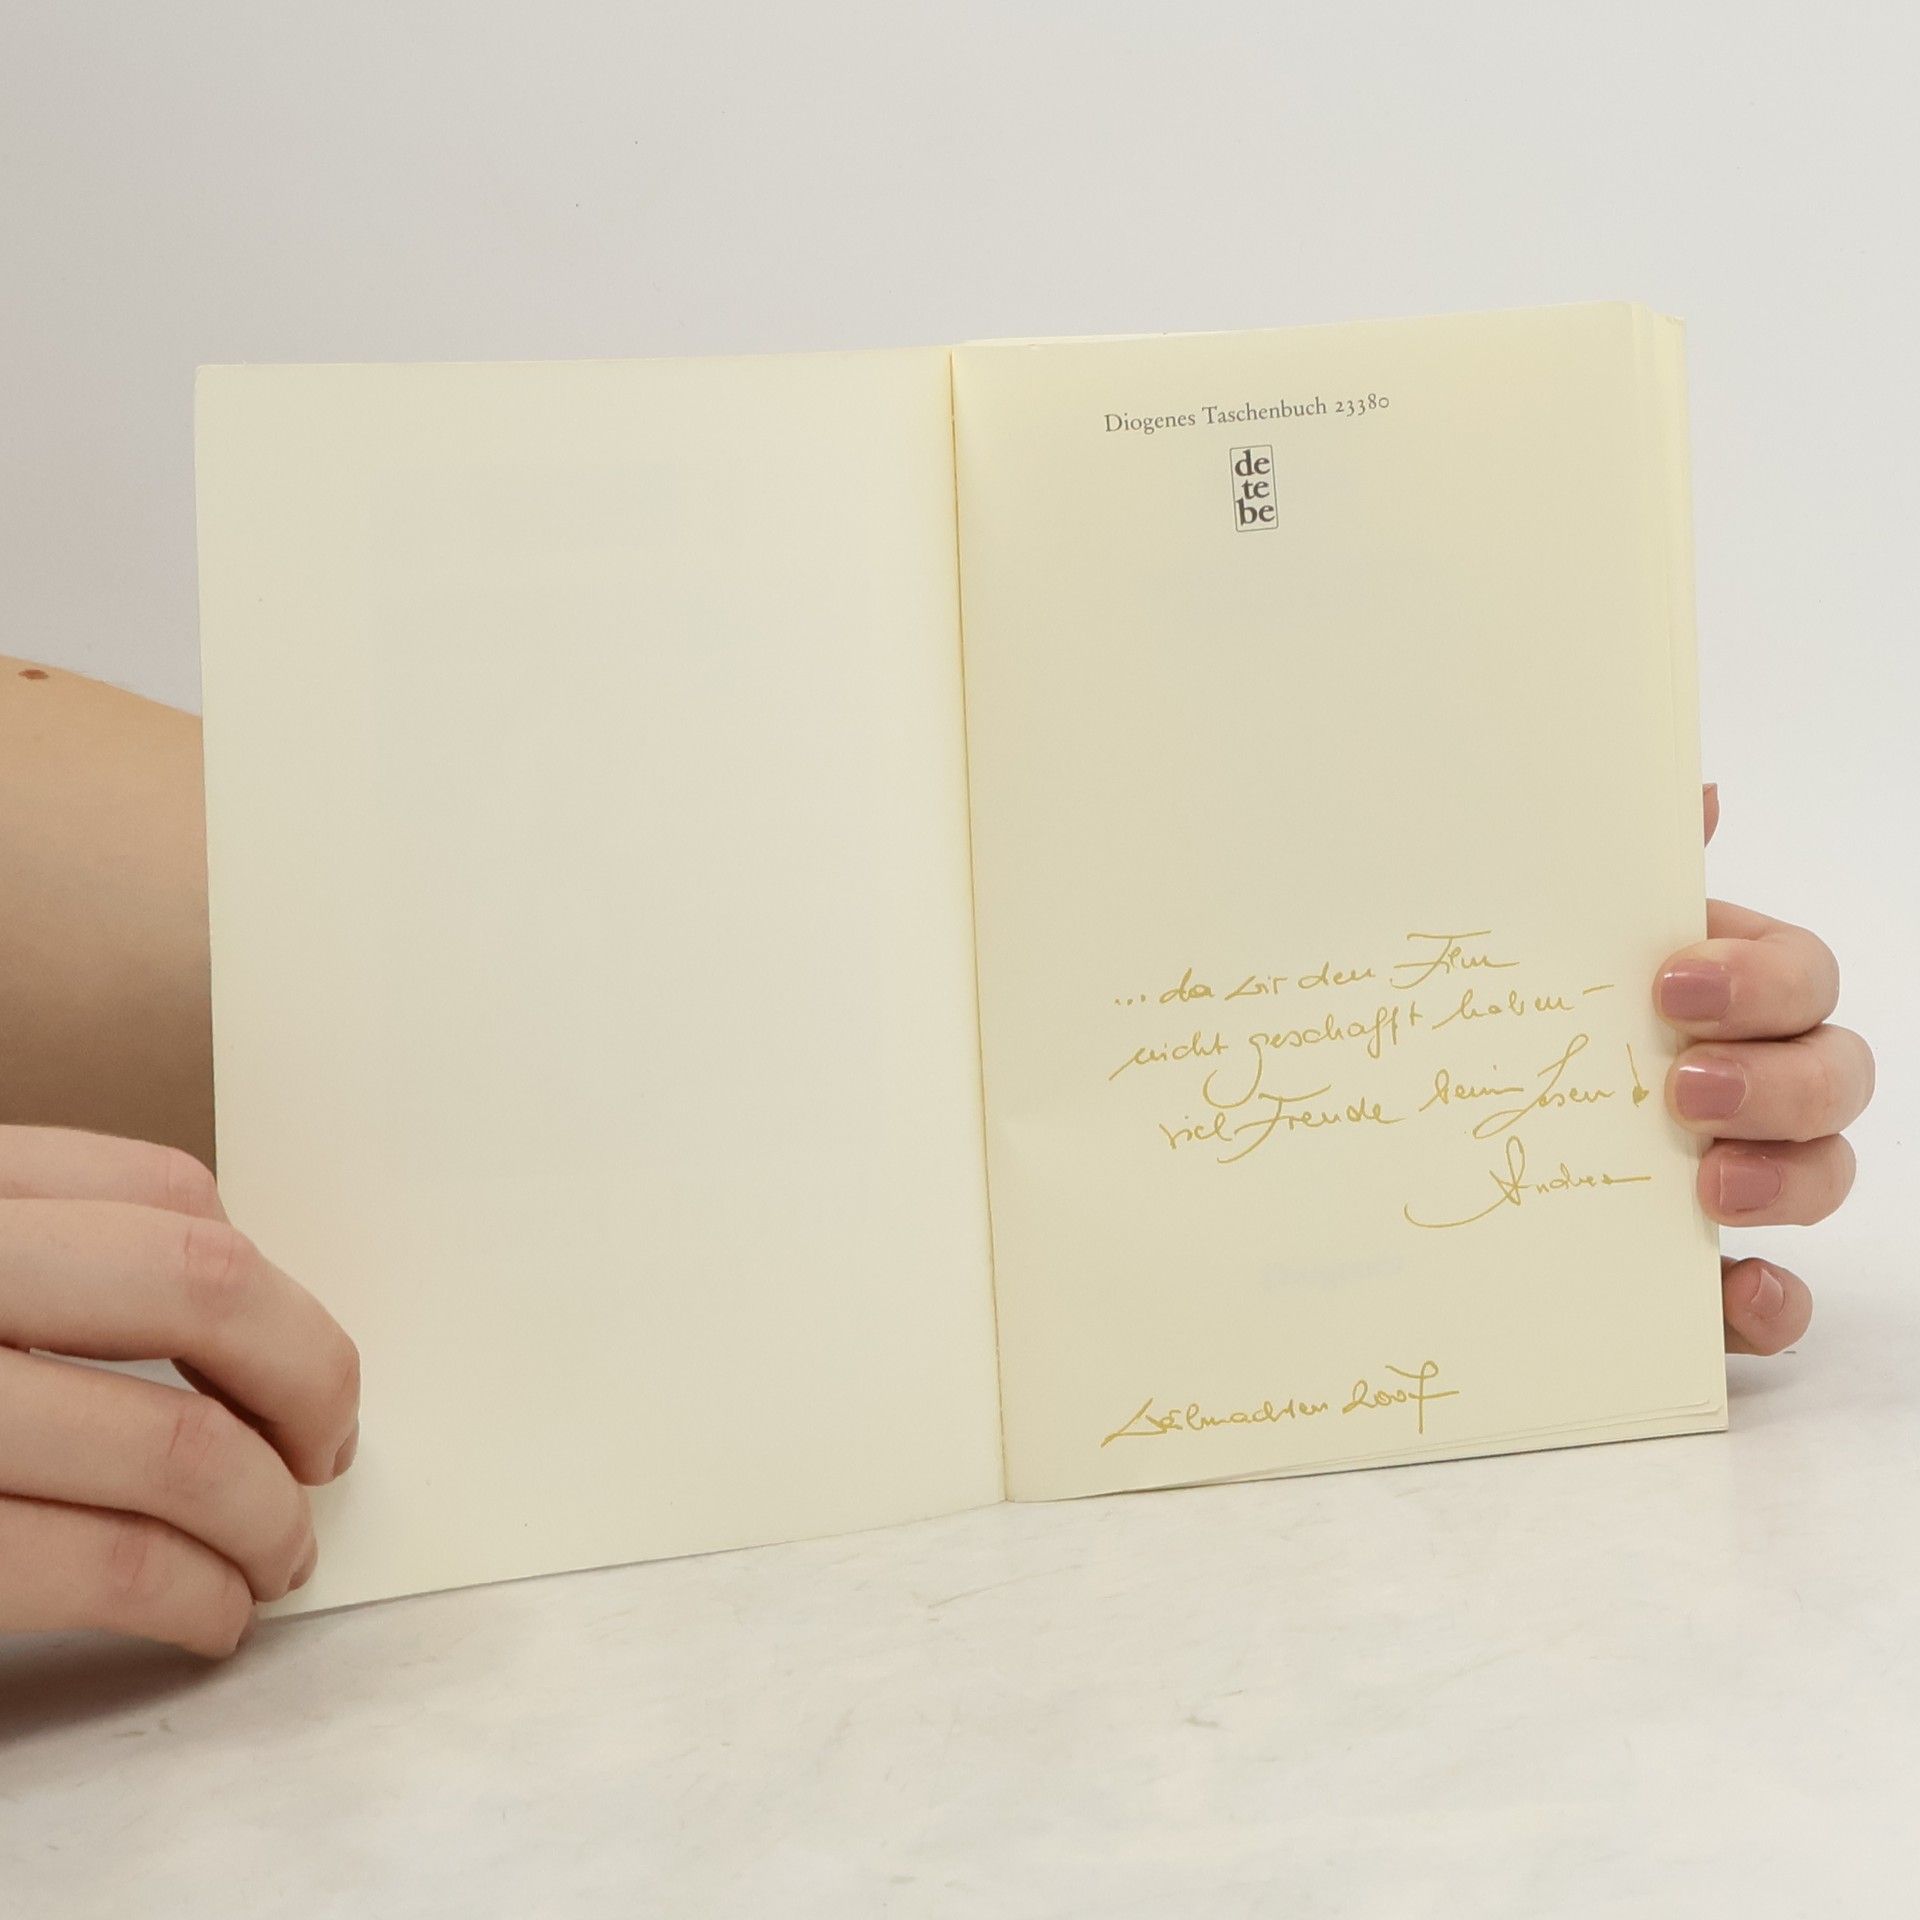 Diogenes Taschenbuch 23380
de
te
be
... da wir den Film
nicht geschafft haben –
viel Freude beim Lesen!
Andrea
Weihnachten 2007